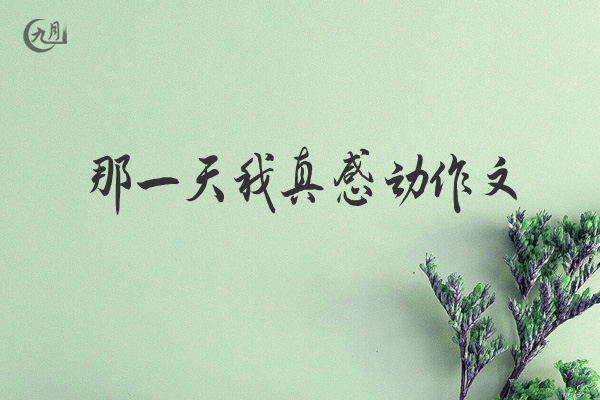 九月
那一天我真感动作文